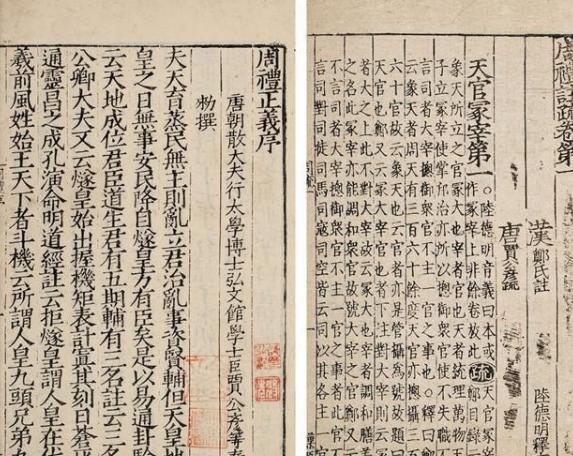 周禮正義序
唐朝散大夫行太學博士弘文館學士臣賈公彥等奉
勑撰
夫天育蒸民無主則亂立君治亂事資賢輔但天皇地
皇之日無事安民降自燧皇方有臣矣是以易通卦驗
云天地成位君臣道生君有五期輔有三名註云三名
公卿大夫又云燧皇始出握機矩表計寘其刻日蒼
通靈昌之成孔演命明道經註云拒燧皇謂人皇在伏
羲前風姓始王天下者斗機云所謂人皇九頭兄弟九
周禮註疏卷第一
漢鄭氏註 陸德明釋
唐賈公彥疏
天官冢宰第一 ○陸德明音義曰本或作冢宰上非餘卷放此 疏 天官冢宰 鄭目錄云
象天所立之官冢大也宰者官也天者統理萬物天
子立冢宰使掌邦治亦所以總御衆官使不失職
言司者大宰摠御衆官不主一官之事也○釋曰鄭
云象天者周天有三百六十餘度天官亦摠攝三
六十官故云象天也云官者亦是管攝為號故題曰
天官也鄭又云冢大宰者下注對大宰則云
者大之上此不對大宰故云冢大也宰者調和膳羞
之名此冢宰亦能調和衆官故號大宰之官鄭又
不言司者大宰摠御衆官不主一官之事者此官
言司對司徒司馬司寇司空皆云司以其各主一